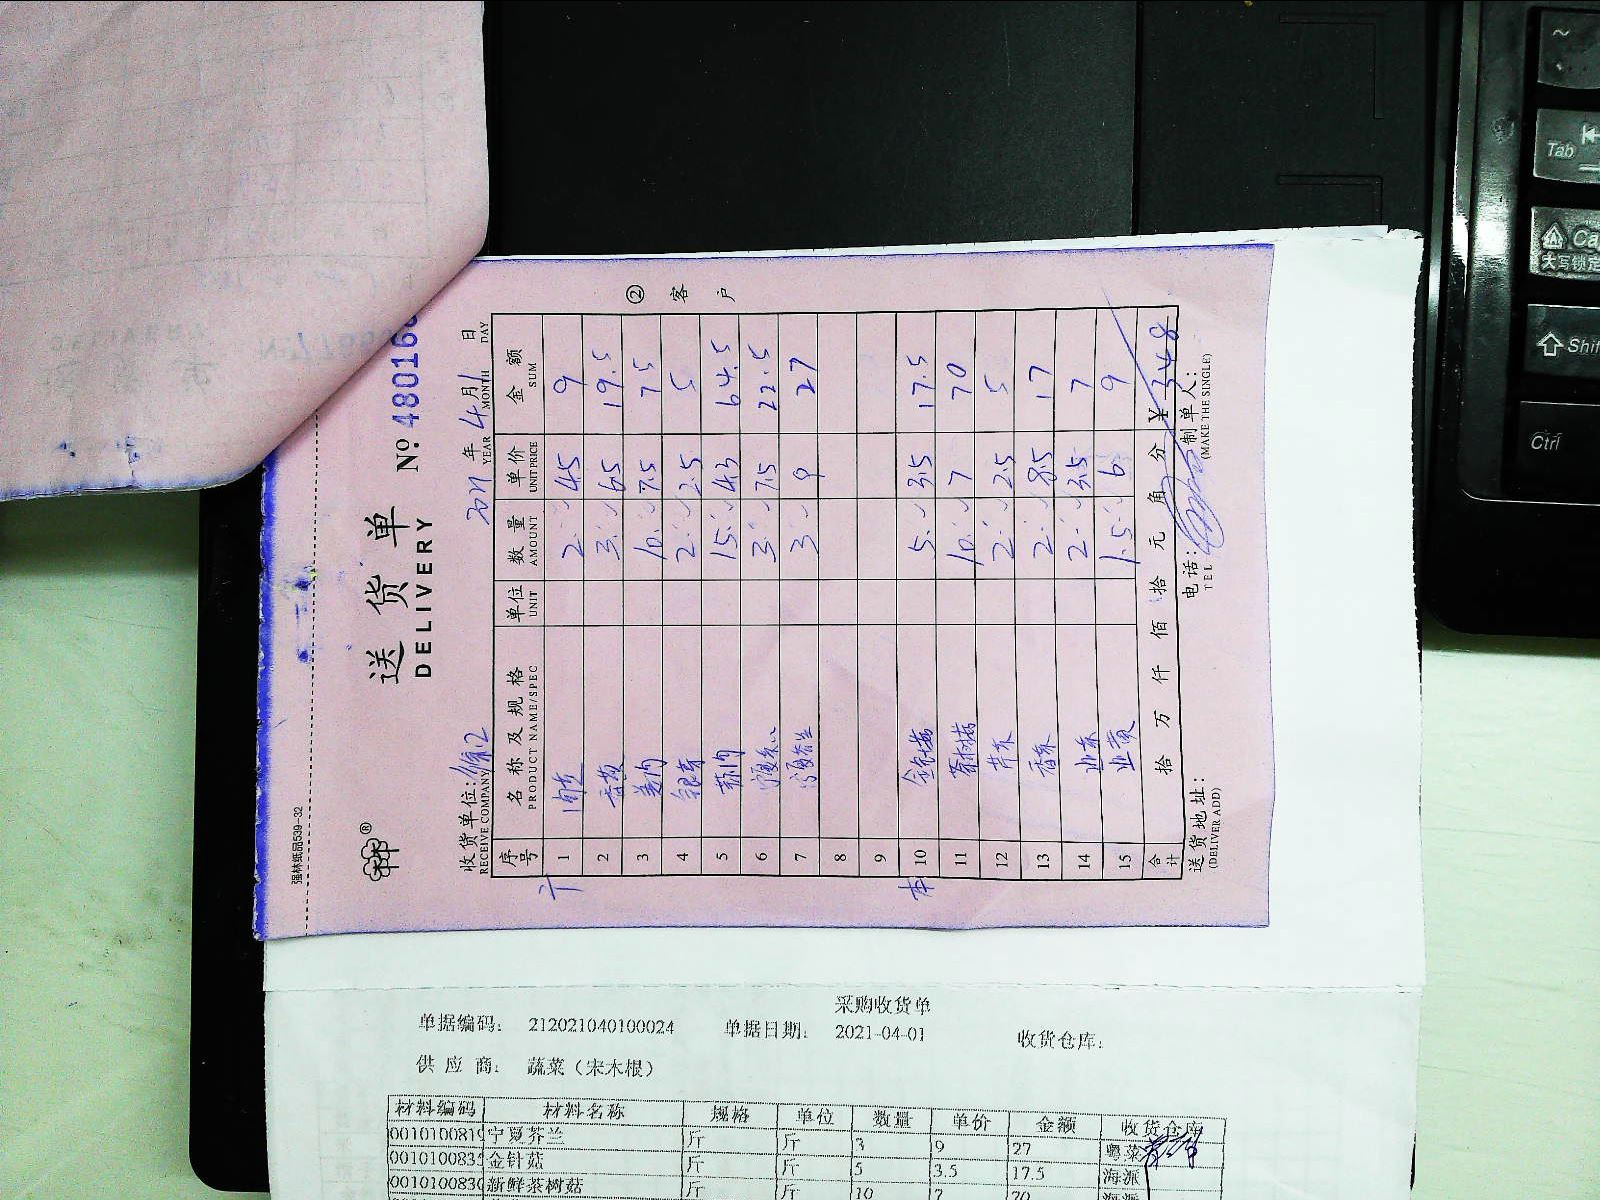 强林纸品539-32
送货单
DELIVERY
No. 480168
收货单位:
RECEIVE COMPANY
2021年4月1日
YEAR MONTH DAY
② 客户
序号 名称及规格 PRODUCT NAME/SPEC 单位 UNIT 数量 AMOUNT 单价 UNIT PRICE 金额 SUM
1 2 4.5 9
2 香菜 3 6.5 19.5
3 姜肉 10 7.5 75
4 银芽 2 2.5 5
5 蒜肉 15 4.3 64.5
6 宁夏菜心 3 7.5 22.5
7 宁夏芥兰 3 9 27
8
9
10 金针菇 5 3.5 17.5
11 茶树菇 10 7 70
12 芹 2 2.5 5
13 香 2 8.5 17
14 2 3.5 7
15 1.5 6 9
合计 拾 万 仟 佰 拾 元 角 分 ¥ 348
送货地址:
(DELIVER ADD)
电话:
TEL
制单人:
(MAKE THE SINGLE)
采购收货单
单据编码: 212021040100024 单据日期: 2021-04-01 收货仓库:
供应商: 蔬菜（宋木根）
材料编码 材料名称 规格 单位 数量 单价 金额 收货仓库
001010081 宁夏芥兰 斤 斤 3 9 27 粤菜
001010083 金针菇 斤 斤 5 3.5 17.5 海派
001010083 新鲜茶树菇 斤 斤 10 7 70 海派
Tab
大写锁定
Shift
Ctrl